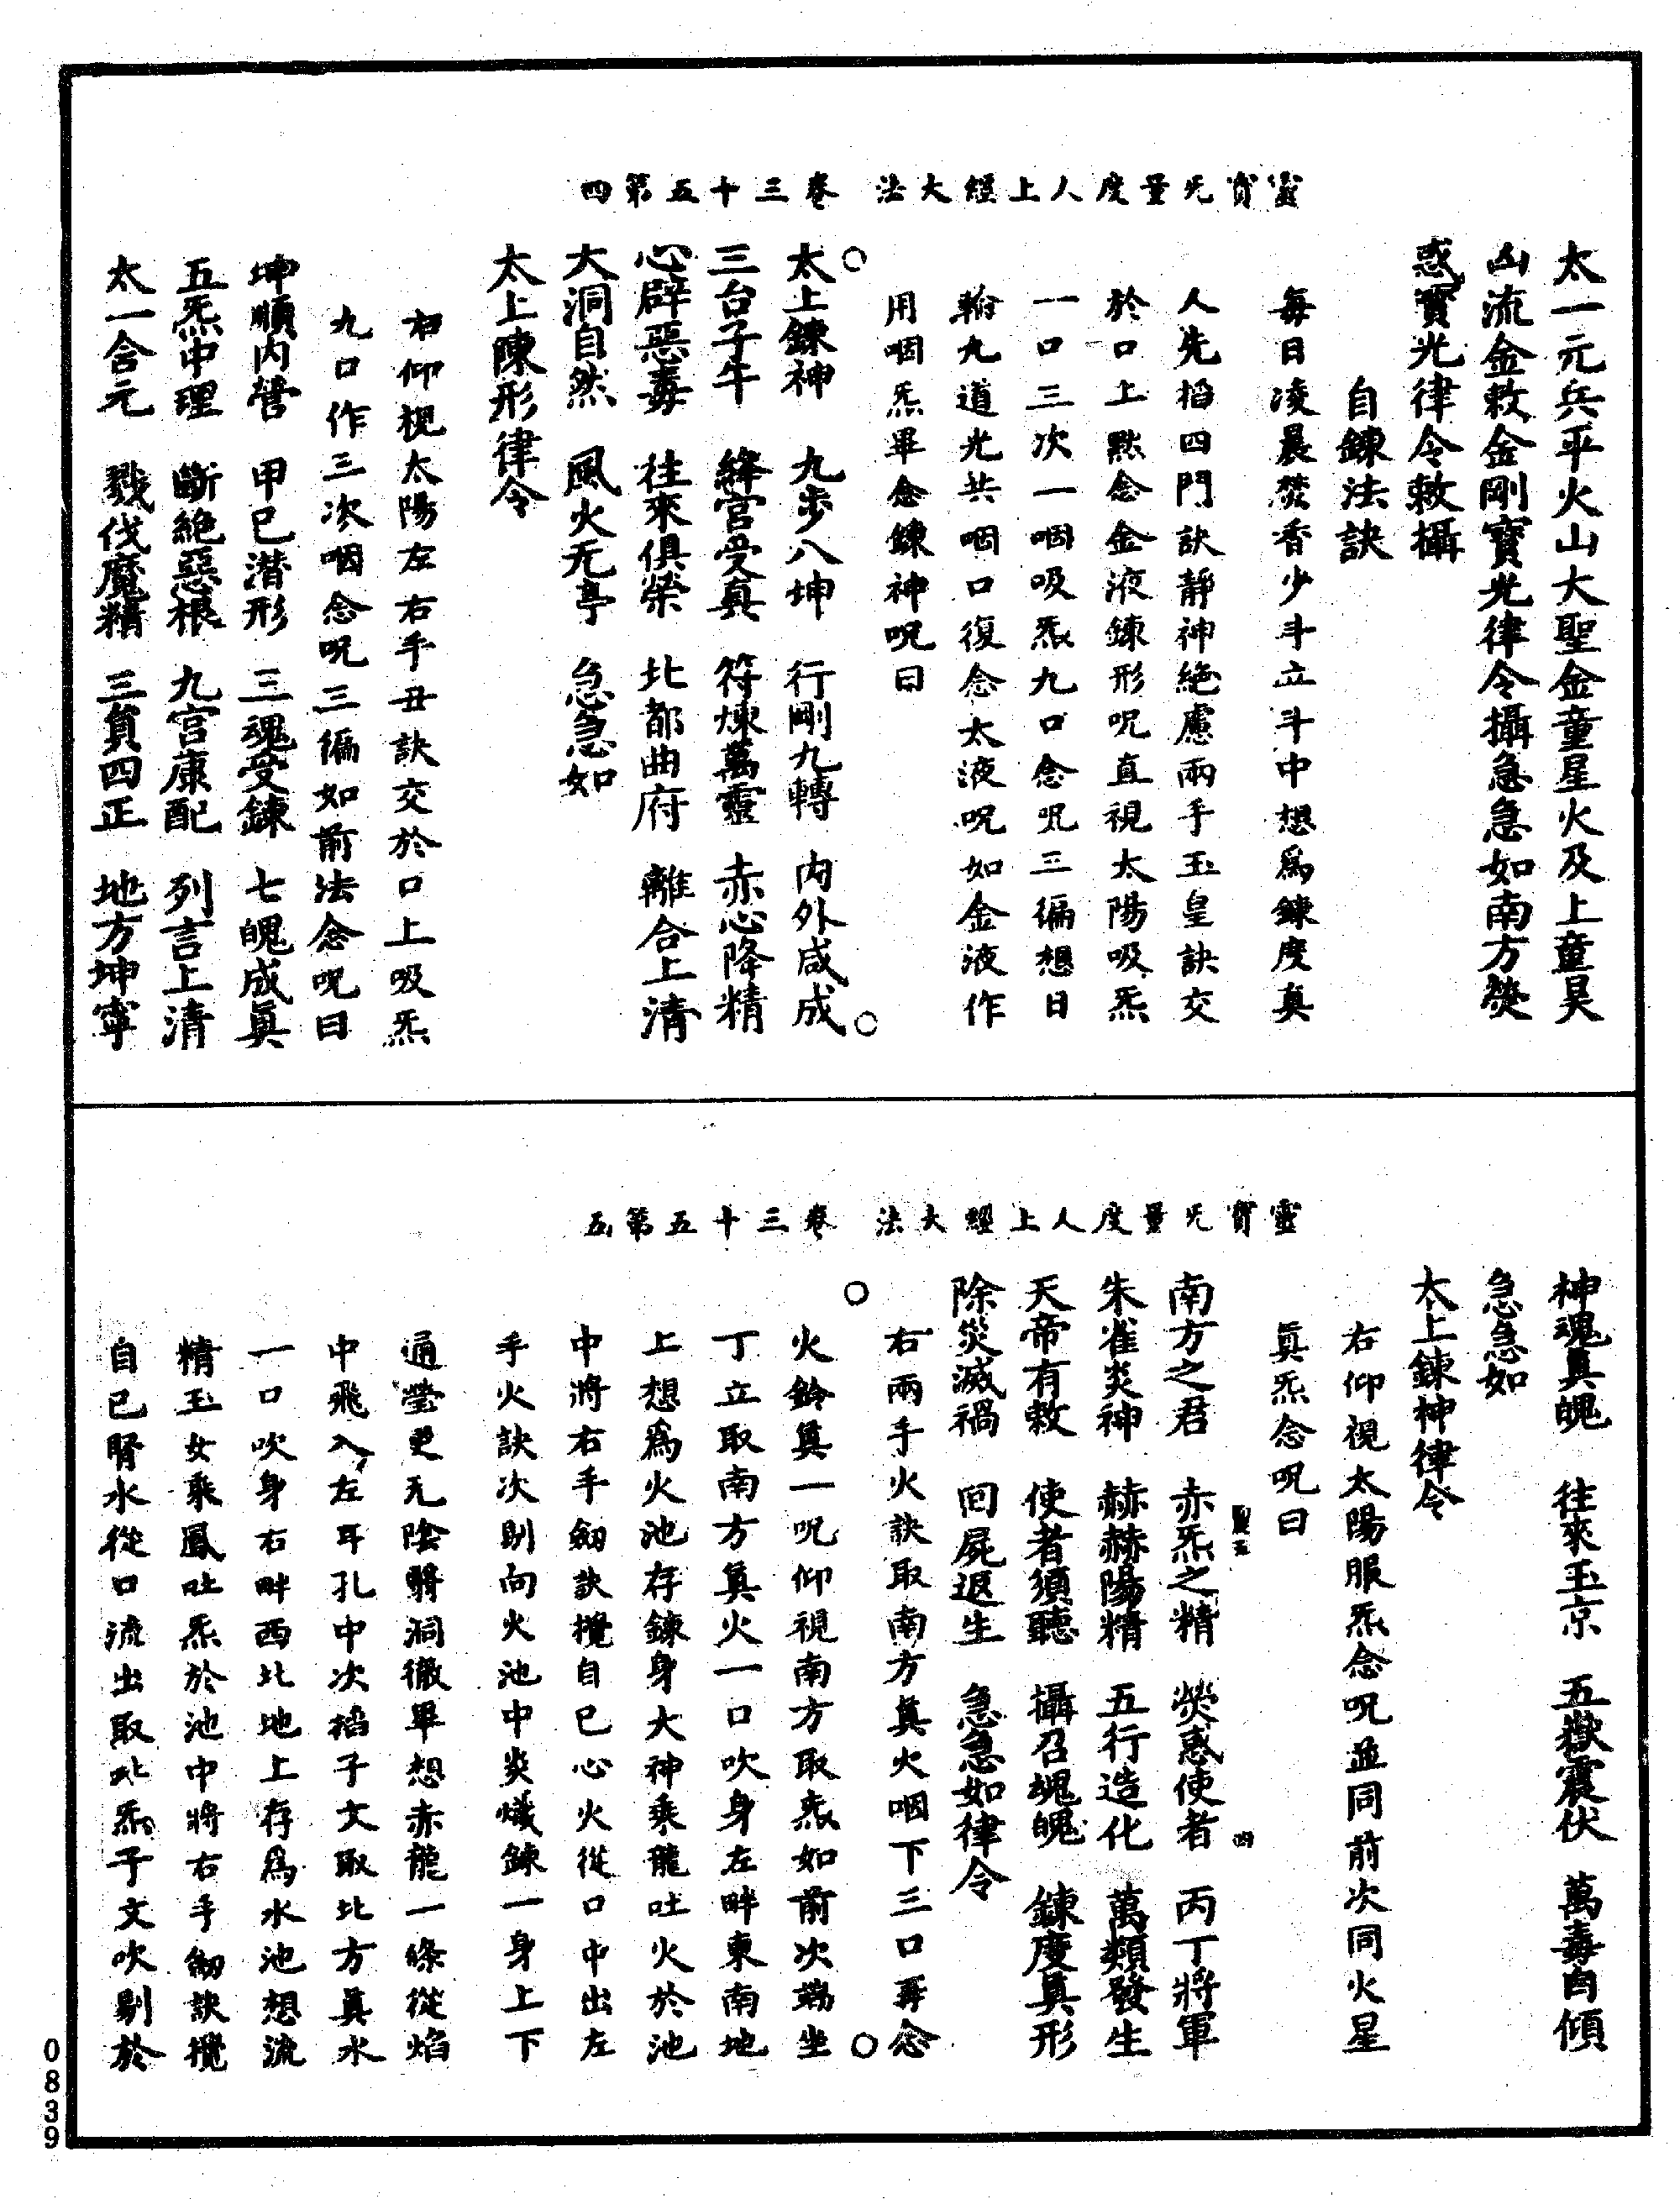 靈寶无量度人上經大法　卷三十五第四
太一元兵平火山大聖金童星火及上童昊
山流金敕金剛寶光律令攝急急如南方熒
惑寶光律令敕攝
自鍊法訣
每日凌晨焚香少斗立斗中想爲鍊度真
人先掐四門訣靜神絕慮兩手玉皇訣交
於口上默念金液鍊形呪直視太陽吸炁
一口三次一咽吸炁九口念呪三徧想日
輪九道光共咽口復念太液呪如金液作
用咽炁畢念鍊神呪曰
太上鍊神　九步八坤　行剛九轉　内外咸成
三台子午　絳宮受真　符煉萬靈　赤心降精
心辟惡毒　往來俱榮　北都曲府　離合上清
大洞自然　風火无亭　急急如
太上陳形律令
右仰視太陽左右手丑訣交於口上吸炁
九口作三次咽念呪三徧如前法念呪曰
坤順内營　甲已潛形　三魂受鍊　七魄成眞
五炁中理　斷絕惡根　九宮康配　列言上清
太一含元　戮伐魔精　三負四正　地方坤寧
靈寶无量度人上經大法　卷三十五第五
神魂真魄　往來玉京　五嶽震伏　萬毒自傾
急急如
太上鍊神律令
右仰視太陽服炁念呪並同前次同火星
眞炁念呪曰
南方之君　赤炁之精　熒惑使者　丙丁將軍
朱雀炎神　赫赫陽精　五行造化　萬類發生
天帝有敕　使者須聽　攝召魂魄　鍊度真形
除災滅禍　回屍退生　急急如律令
右兩手火訣取南方真火咽下三口再念
火鈴真一呪仰視南方取炁如前次端坐
丁立取南方真火一口吹身左畔東南地
上想爲火池存鍊身大神乘龍吐火於池
中將右手劒訣攪自已心火從口中出左
手火訣次剔向火池中炎熾鍊一身上下
通瑩更无陰翳洞徹畢想赤龍一條從焰
中飛入左耳孔中次掐子文取北方眞水
一口吹身右畔西北地上存爲水池想流
精玉女乘鳳吐炁於池中將右手劒訣攪
自已腎水從口流出取北炁子文吹剔於
0839